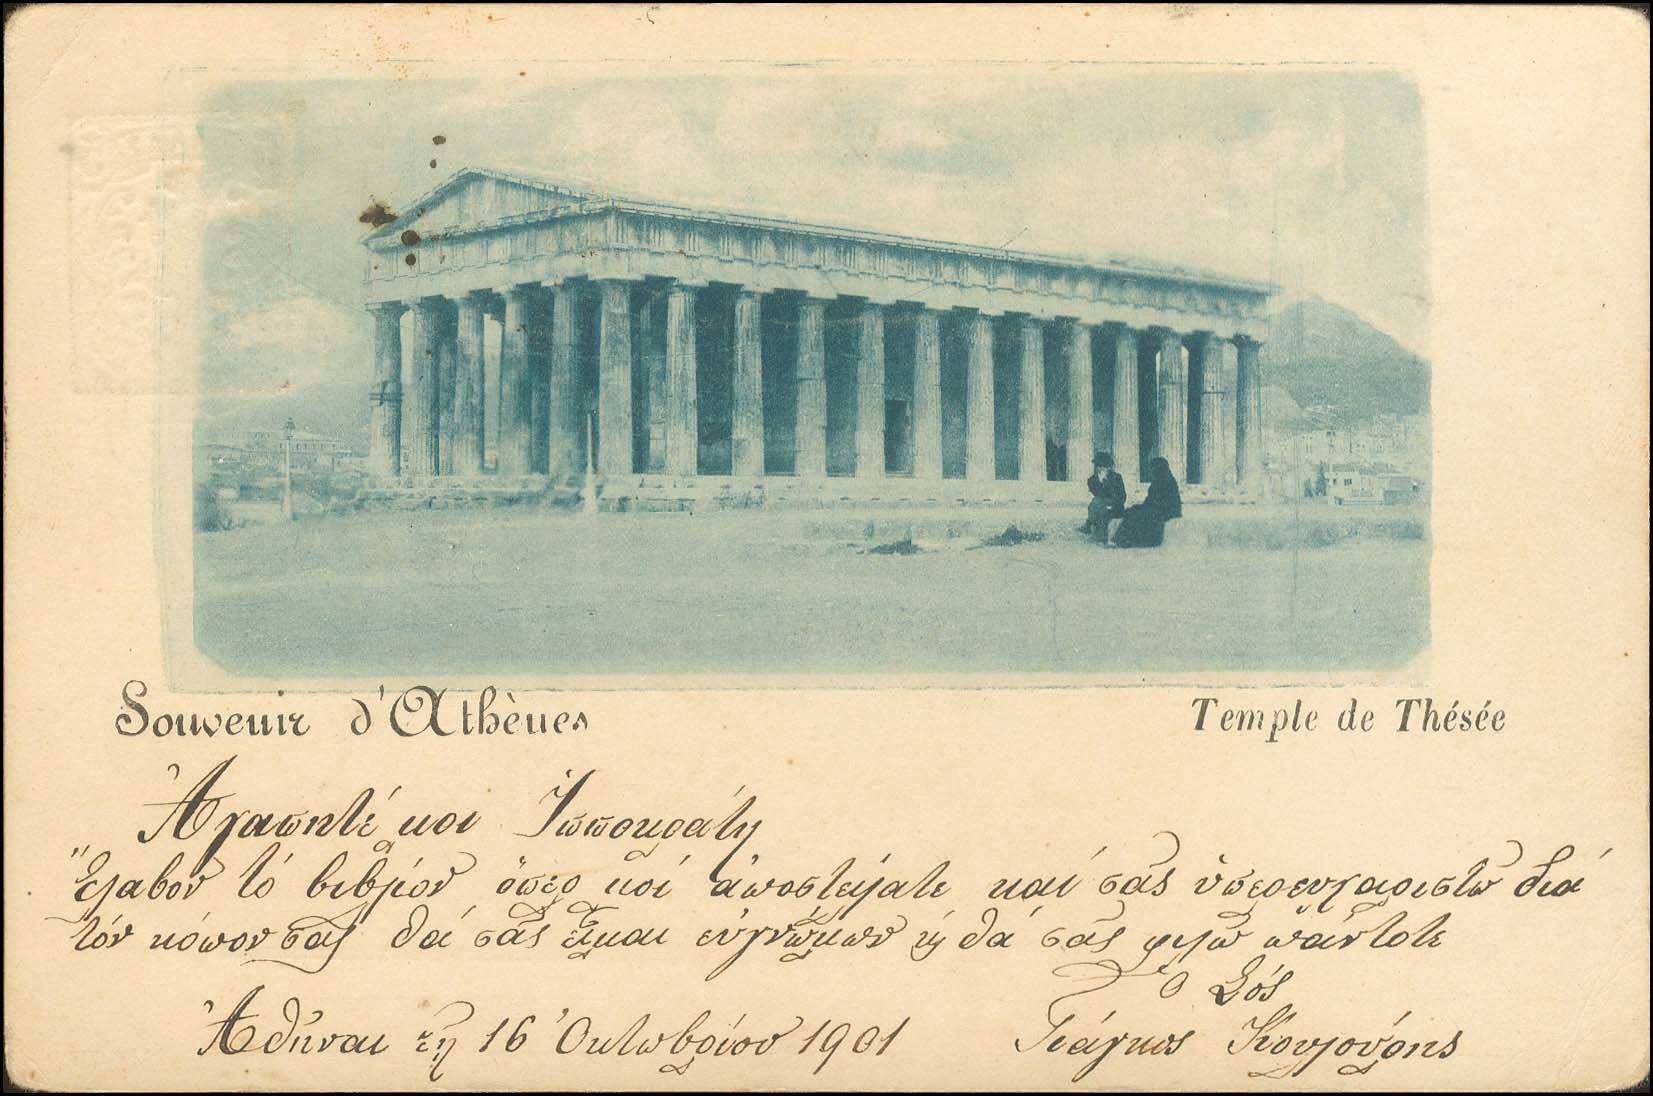 Souvenir d'Athènes
Temple de Thésée
Ἀγαπητέ μοι Ἱπποκράτη
Ἔλαβον τό βιβλίον ὅπερ μοί ἀποστείλατε καί σᾶς ὑπερευχαριστῶ διά
τόν κόπον σας θά σᾶς εἶμαι εὐγνώμων ἤ θά σᾶς φιλῶ πάντοτε
Ὁ Σός
Ἀθῆναι τῇ 16 Ὀκτωβρίου 1901
Γιάγκος